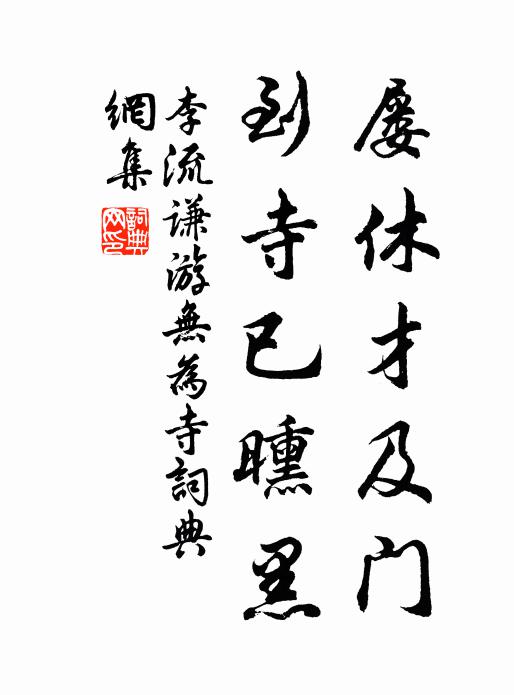 屡休才及门
到寺已曛黑
李流謙游無為寺詞典
網集
詞典網印